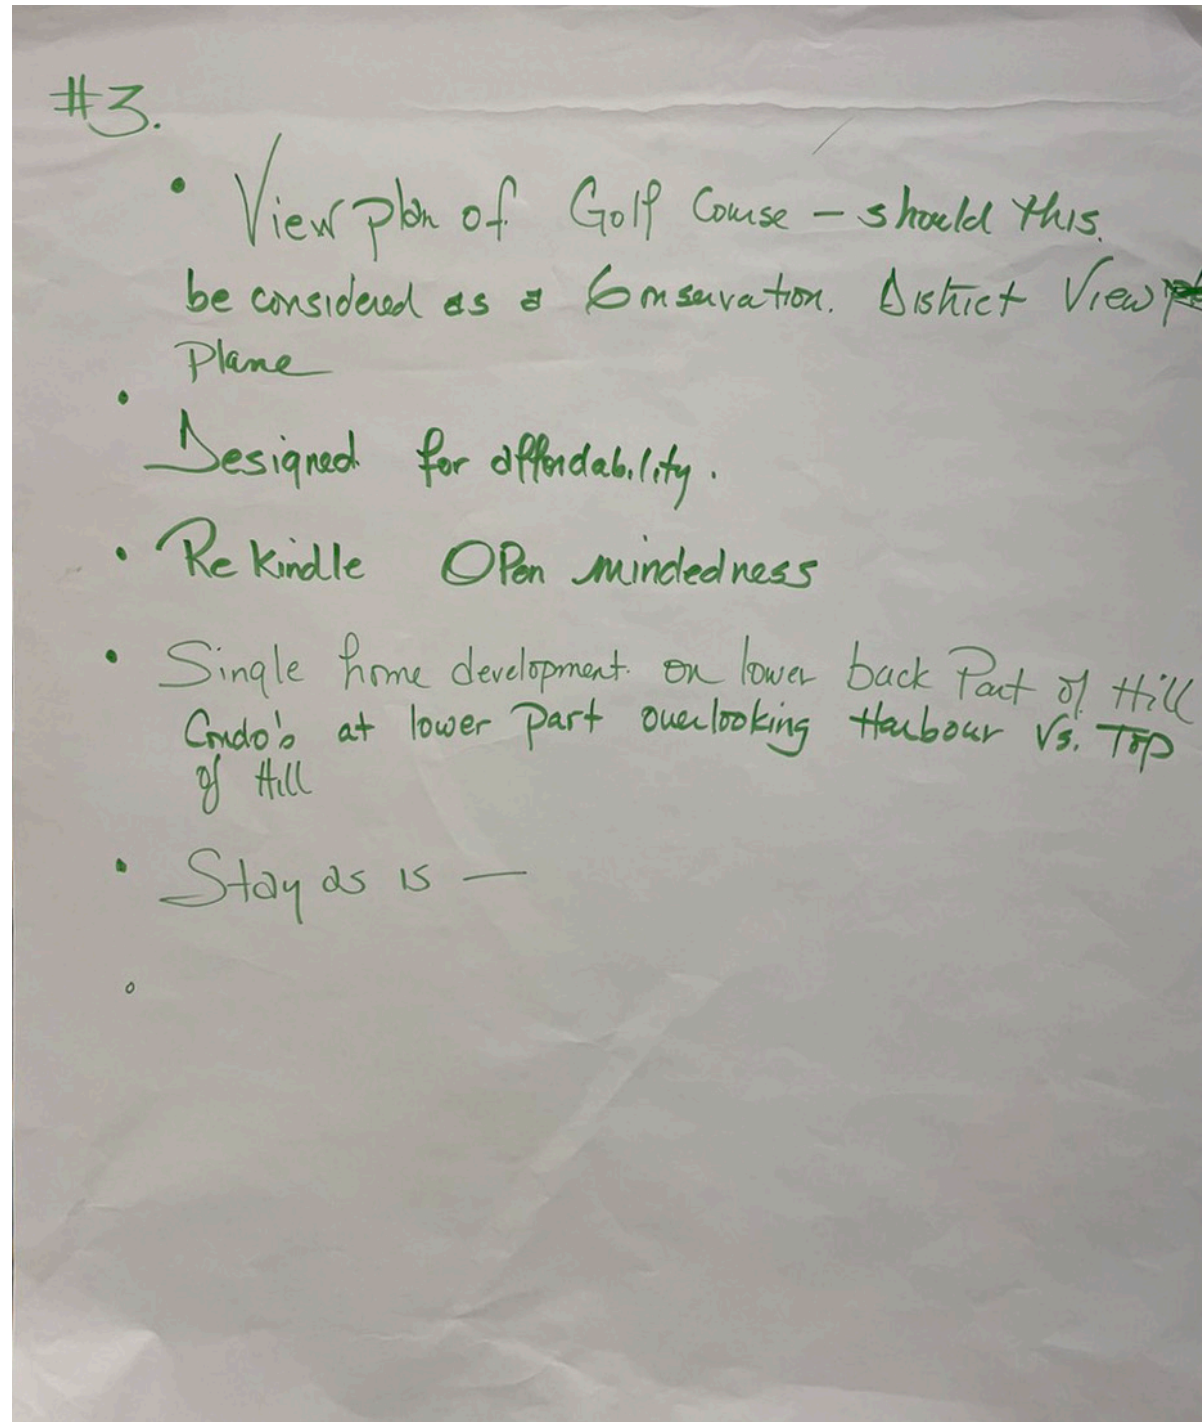 #3.
• View plan of Golf Course – should this.
be considered as a Conservation. District View
Plane
•
Designed for affordability.
• Rekindle Open mindedness
• Single home development. on lower back Part of Hill
Condo's at lower Part overlooking Harbour Vs. Top
of Hill
• Stay as is —